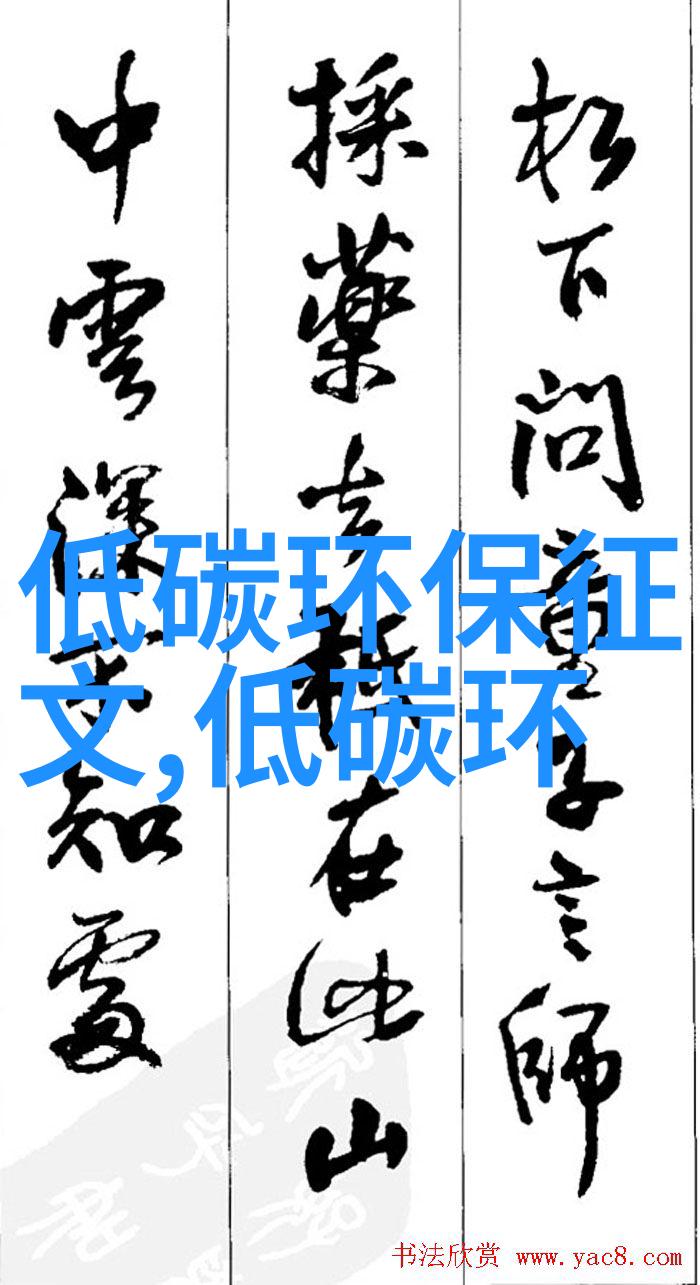 松下问童子言師
採藥去在此山
中雲深不知處
低碳环保征
文,低碳环
书法欣赏 www.yac8.com